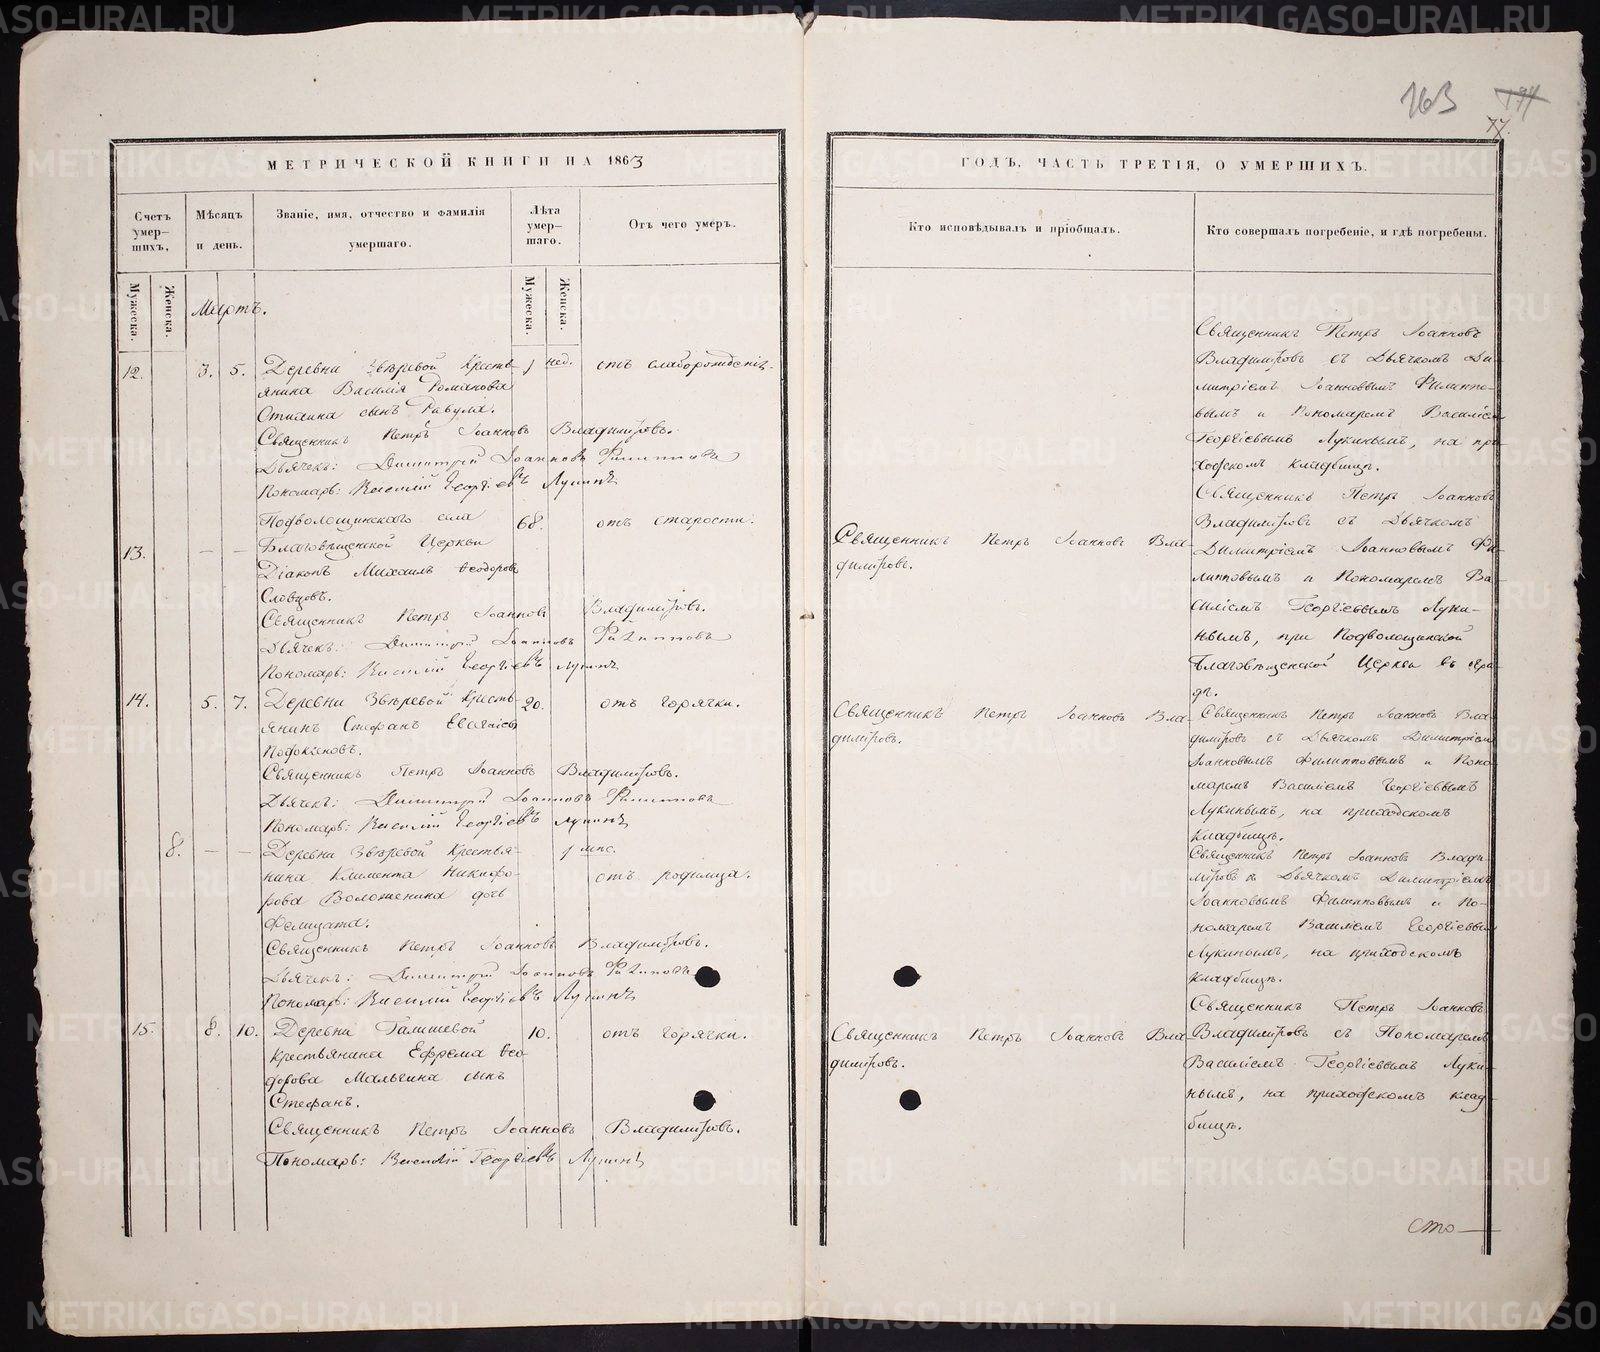 163 194
77.
МЕТРИЧЕСКОЙ КНИГИ НА 1863
ГОДЪ, ЧАСТЬ ТРЕТІЯ, О УМЕРШИХЪ.
Счетъ умер-
шихъ.
Мѣсяцъ
и день.
Званіе, имя, отчество и фамилія
умершаго.
Лѣта
умер-
шаго.
Отъ чего умеръ.
Кто исповѣдывалъ и пріобщалъ.
Кто совершалъ погребеніе, и гдѣ погребены.
Мужеска.
Женска.
Мужеска.
Женска.
Мартъ.
12. 3. 5. Деревни Звѣревой Кресть- 1 нед. отъ слаборожденія.
янина Василія Романова
сынъ Равула.
Священникъ Петръ Іоанновъ Владиміровъ.
Дьячекъ: Димитрій Іоанновъ Филипповъ
Пономарь: Василій Георгіевъ Лукинъ
Священникъ Петръ Іоанновъ
Владиміровъ съ Дьячкомъ Ди-
митріемъ Іоанновымъ Филиппо-
вымъ и Пономаремъ Василіем
Георгіевымъ Лукинымъ, на при-
ходскомъ кладбищѣ.
13. — — Подволошинскаго села 68. отъ старости.
Благовѣщенской Церкви
Діаконъ Михаилъ Ѳеодоровъ
Словцовъ.
Священникъ Петръ Іоанновъ Владиміровъ.
Дьячекъ: Димитрій Іоанновъ Филипповъ
Пономарь: Василій Георгіевъ Лукинъ
Священникъ Петръ Іоанновъ Вла-
диміровъ.
Священникъ Петръ Іоанновъ
Владиміровъ съ Дьячкомъ
Димитріемъ Іоанновымъ Фи-
липповымъ и Пономаремъ Ва-
силіемъ Георгіевымъ Луки-
нымъ, при Подволошинской
Благовѣщенской Церкви въ огра-
дѣ.
14. 5. 7. Деревни Звѣревой Кресть- 20. отъ горячки.
янинъ Стефанъ
Священникъ Петръ Іоанновъ Владиміровъ.
Дьячекъ: Димитрій Іоанновъ Филипповъ
Пономарь: Василій Георгіевъ Лукинъ
Священникъ Петръ Іоанновъ Вла-
диміровъ.
Священникъ Петръ Іоанновъ Вла-
диміровъ съ Дьячкомъ Димитріемъ
Іоанновымъ Филипповымъ и Поно-
маремъ Василіемъ Георгіевымъ
Лукинымъ, на приходскомъ
кладбищѣ.
8. — — Деревни Звѣревой Крестья- 1 мѣс.
нина Климента Никифо- отъ родимца.
рова Воложенина дочь
Фелицата.
Священникъ Петръ Іоанновъ Владиміровъ.
Дьячекъ: Димитрій Іоанновъ Филипповъ
Пономарь: Василій Георгіевъ Лукинъ
Священникъ Петръ Іоанновъ Влади-
міровъ съ Дьячкомъ Димитріемъ
Іоанновымъ Филипповымъ и По-
номаремъ Василіемъ Георгіевым
Лукинымъ, на приходскомъ
кладбищѣ.
15. 8. 10. Деревни Галишевой 10. отъ горячки.
крестьянина Ефрема Ѳео-
дорова Мальгина сынъ
Стефанъ.
Священникъ Петръ Іоанновъ Владиміровъ.
Пономарь: Василій Георгіевъ Лукинъ
Священникъ Петръ Іоанновъ Вла-
диміровъ.
Священникъ Петръ Іоанновъ
Владиміровъ съ Пономаремъ
Василіемъ Георгіевымъ Луки-
нымъ, на приходскомъ клад-
бищѣ.
сто—
METRIKI.GASO-URAL.RU